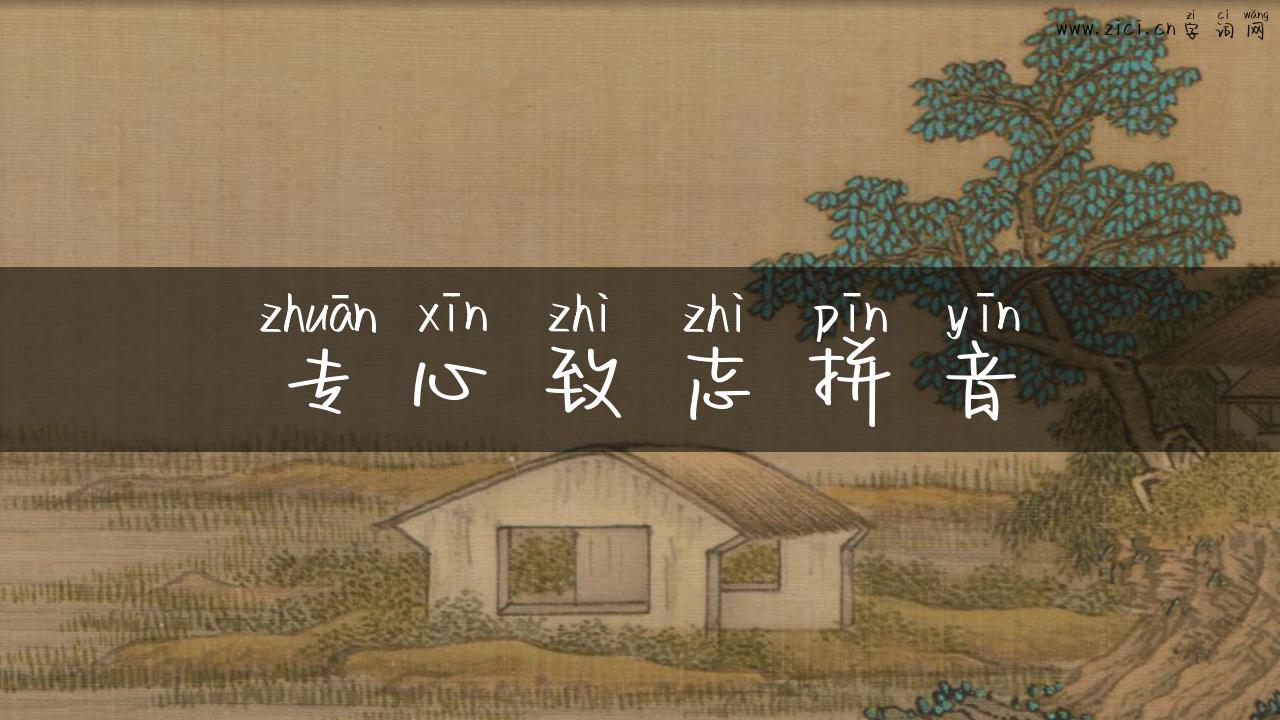 zì cí wǎng
www.zici.cn 字词网
zhuān xīn zhì zhì pīn yīn
专心致志拼音